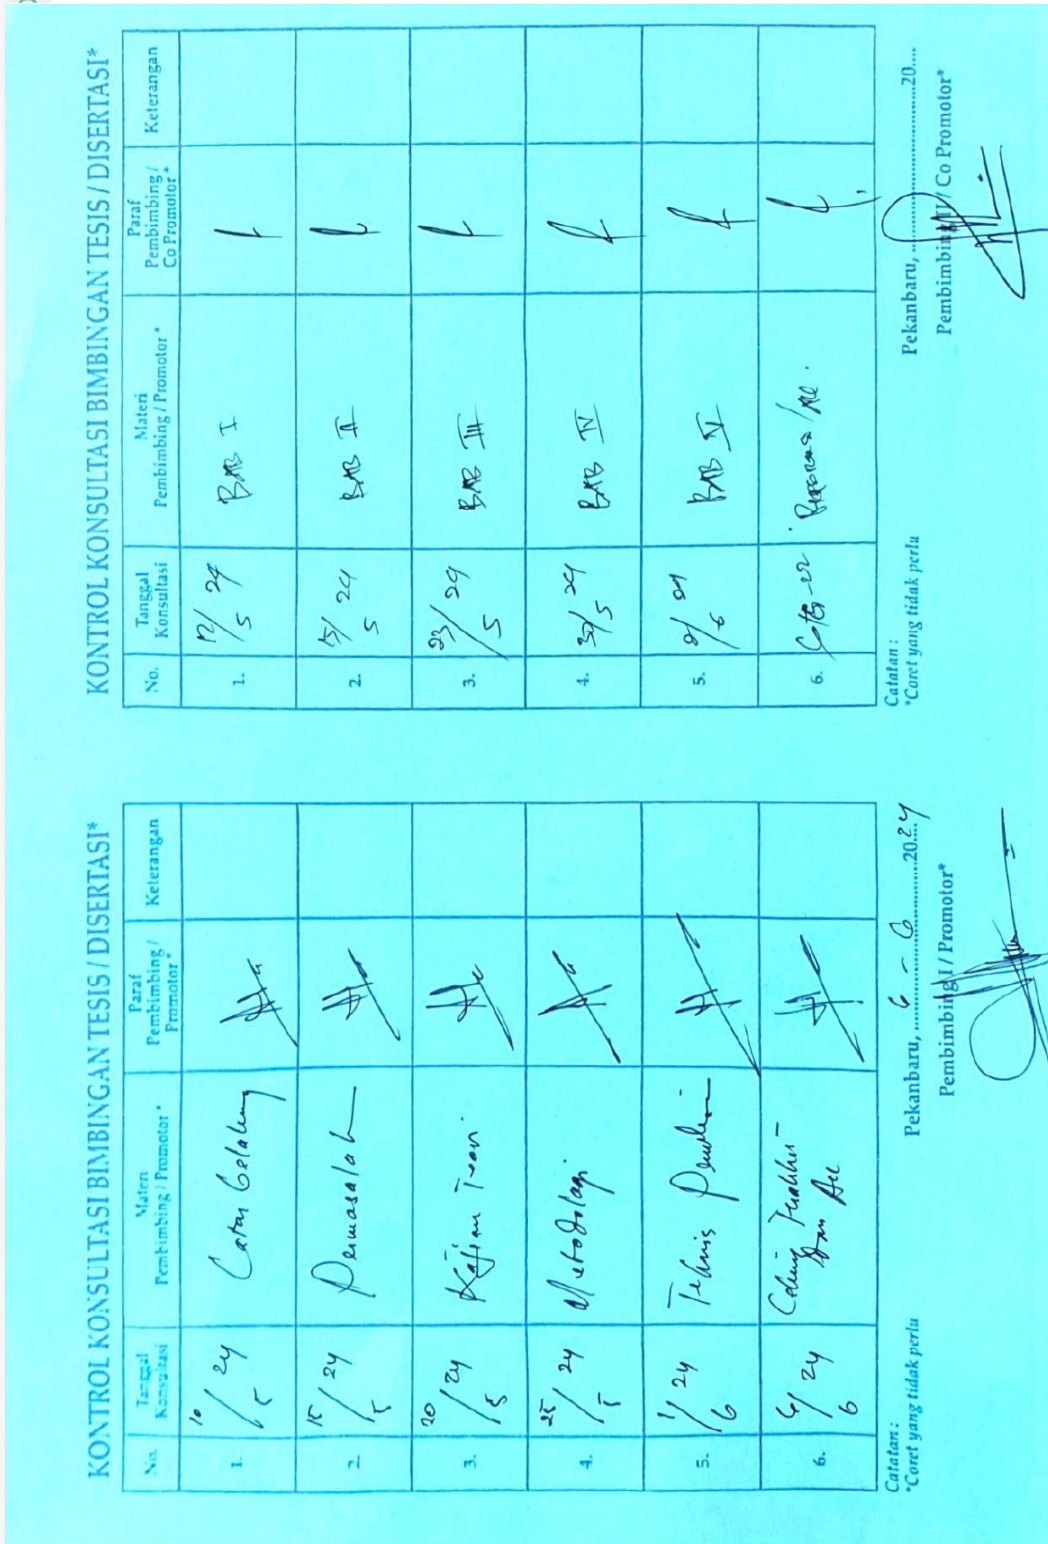 KONTROL KONSULTASI BIMBINGAN TESIS / DISERTASI*
No. Tanggal Konsultasi Materi Pembimbing / Promotor * Paraf Pembimbing / Promotor * Keterangan
1. 10/5 24 Latar belakang
2. 15/5 24 Permasalah
3. 20/5 24 Kajian Teori
4. 25/5 24 Metodologi
5. 1/6 24 Teknis
6. 6/6 24 dan Acc
Catatan :
*Coret yang tidak perlu
Pekanbaru, 6 - 6 2024
Pembimbing I / Promotor*
KONTROL KONSULTASI BIMBINGAN TESIS / DISERTASI*
No. Tanggal Konsultasi Materi Pembimbing / Promotor * Paraf Pembimbing / Co Promotor * Keterangan
1. 12/5 24 BAB I
2. 15/5 24 BAB II
3. 23/5 24 BAB III
4. 30/5 24 BAB IV
5. 2/6 24 BAB V
6.
Catatan :
*Coret yang tidak perlu
Pekanbaru, ........................20....
Pembimbing II / Co Promotor*